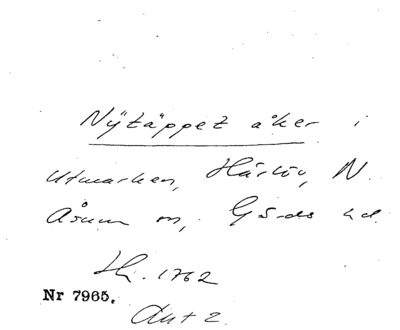 Nytäppet åker i
Utmarken, Härlöv, N.
Åsum sn, Gärds hd.
Hi. 1762
Nr 7965.
Akt 2.